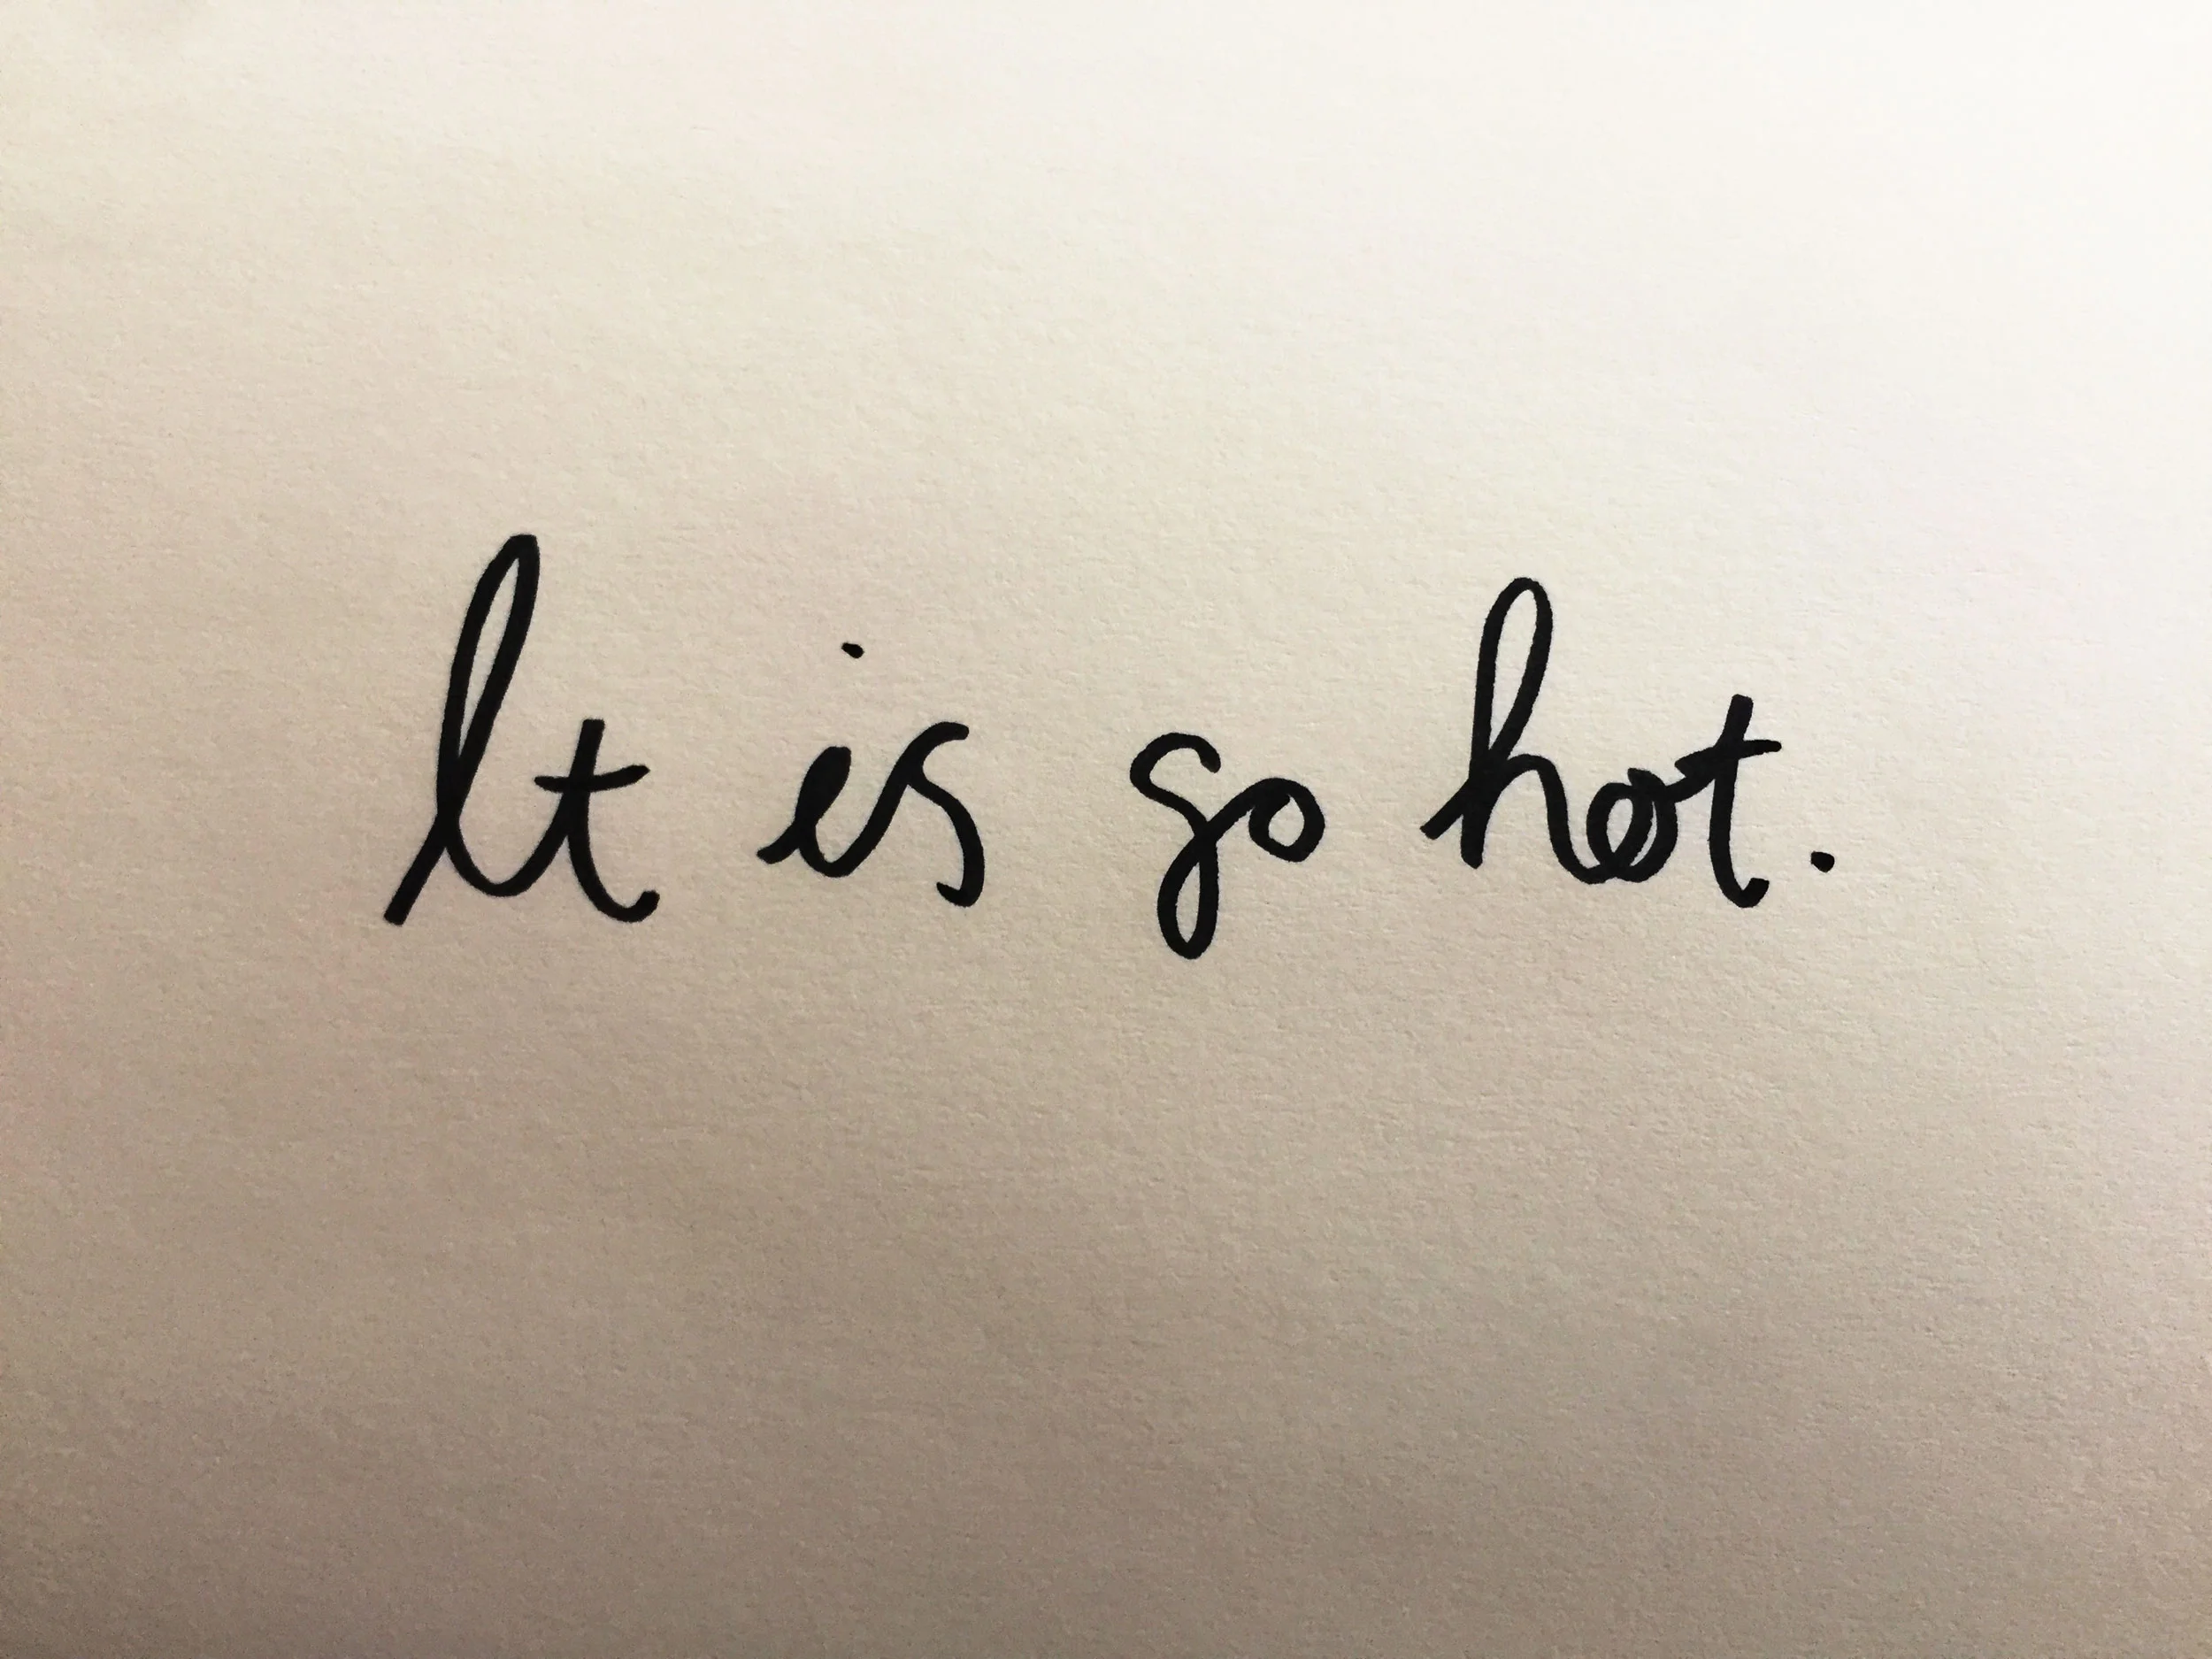 It is so hot.